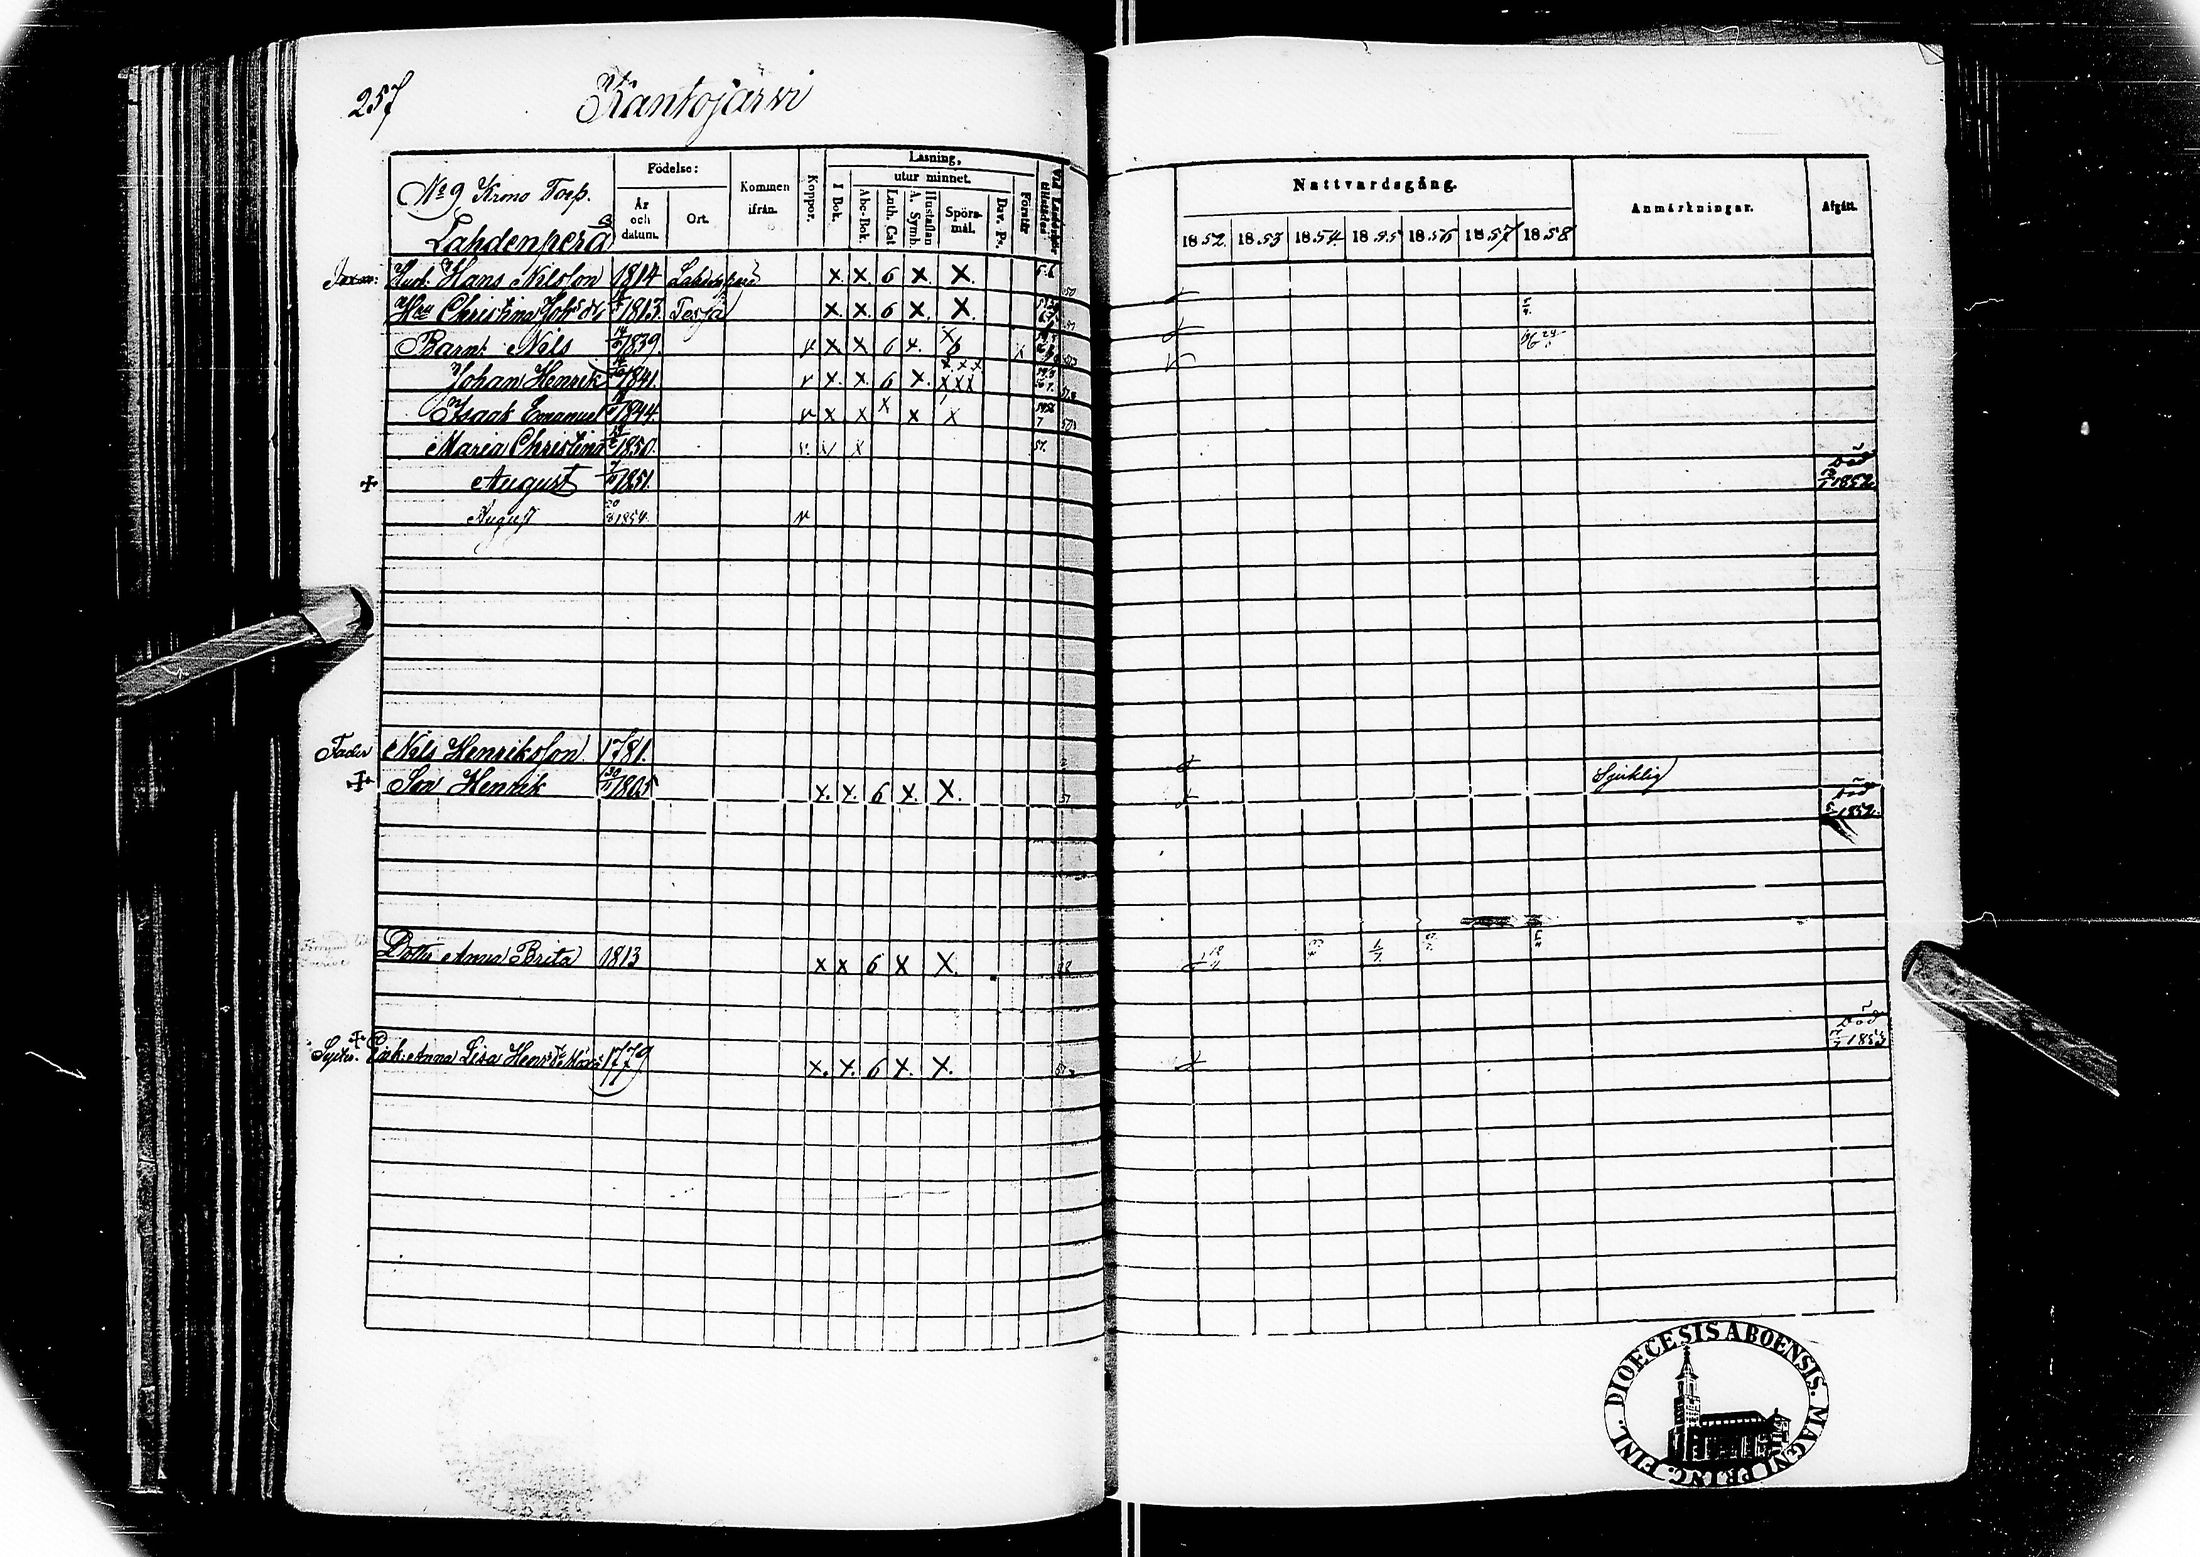 257
Kantojärvi
No 9 Krono Torp.
Lahdenperä
Födelse:
År och datum.
Ort.
Kommen ifrån.
Koppor.
Läsning,
utur minnet.
I Bok.
Abc-Bok.
Luth. Cat
Hustaflan A. Symb.
Spörsmål.
Dav. Ps.
Förstår
Nattvardsgång.
1852. 1853 1854. 1855 1856 1857 1858
Anmärkningar.
Afgått.
Hans Nilsson 1814 x. x. 6 x X.
Hu Christina 1813. x. x. 6 x. X.
Barn: Nils 1839. v x x 6 x.
Johan Henrik 1841. v x. x 6 x. xxx
Isaak Emanuel 1844 v x x x x x
Maria Christina 1850. v. v x 57.
+ August 1851. Död 1852
August 1854. v
Fader Nils Henriksson 1781.
Sjuklig
+ Son Henrik 1805 x. x. 6 x. X. Död 1852.
Dottr Anna Brita 1813 x x 6 x X.
+ Enk. Anna Lisa 1779 x. x. 6 x. X. Död 1853
DIOECESIS ABOENSIS. MAGNI PRINC. FINL.